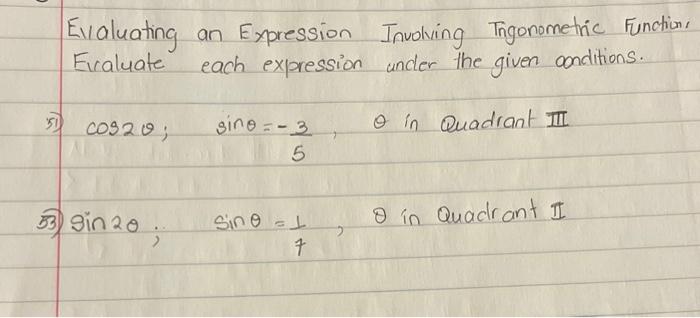 Evaluating an Expression Involving Trigonometric Function
Evaluate each expression under the given conditions.
51) cos2θ; sinθ = -3/5, θ in Quadrant III
53) sin2θ; sinθ = 1/7, θ in Quadrant II